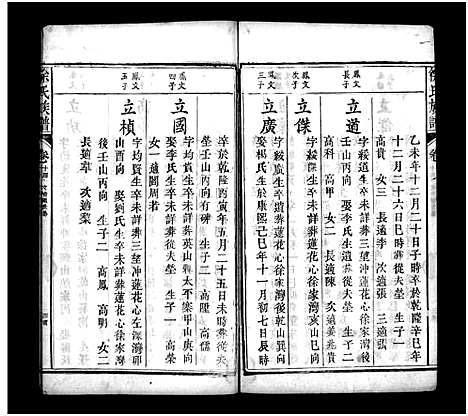 徐氏族譜
卷
乙未年十二月二十日子時卒於乾隆辛巳年
十二月二十六日巳時葬從夫塋 生子一
高貴 女三 長適李 次適張 三適張
鳳文長子
立道 字 生卒未詳葬三望沖蓮花心徐家灣
壬山丙向 娶李氏生卒未詳葬從夫塋 生子
高甲 女二 長適陳 次適姜
鳳文次子
立傑 字 生卒未詳葬蓮花心徐家灣亥山巳向
鳳文三子
立廣 字 生卒未詳葬蓮花心徐家灣後乾山巽向
娶楊氏生於康熙己巳年十一月初七日辰時
卒於乾隆酉寅年五月二十五日未時葬從夫
塋壬山丙向有碑 生子二 高陞 高
鳳文四子
立國 字均賢生卒未詳葬英山縣太不寨甲山庚向
娶李氏生卒未詳葬從夫塋 生子一 高
女一適閻周者
鳳文五子
立楨 字均貢生卒未詳葬三望沖蓮花心左深灣卯
山酉向 娶劉氏生卒未詳葬蓮花心徐家灣
後壬山丙向 生子二 高鳳 高明 女二
長適董 次適葉
徐氏族譜
卷十